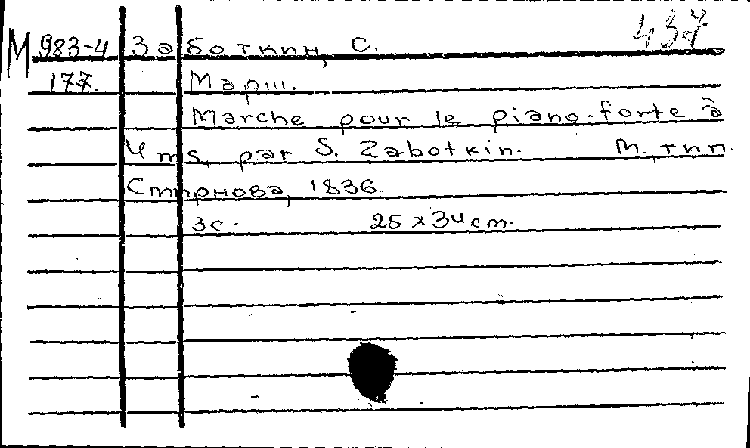 М 983-4 Заботкин, С. 437
177. Марш.
Marche pour le piano-forte à
4 ms, par S. Zabotkin. М., тип.
Смирнова, 1836.
3с. 25 x 34 cm.